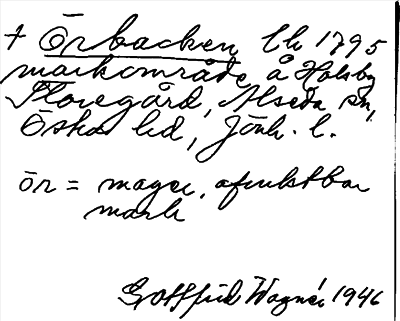 † Örbacken lh 1795
markområde å Holsby
Storegård, Alseda sn,
Östra hd, Jönk. l.
ör = mager, ofruktbar
mark
Gottfrid Wagnér 1946